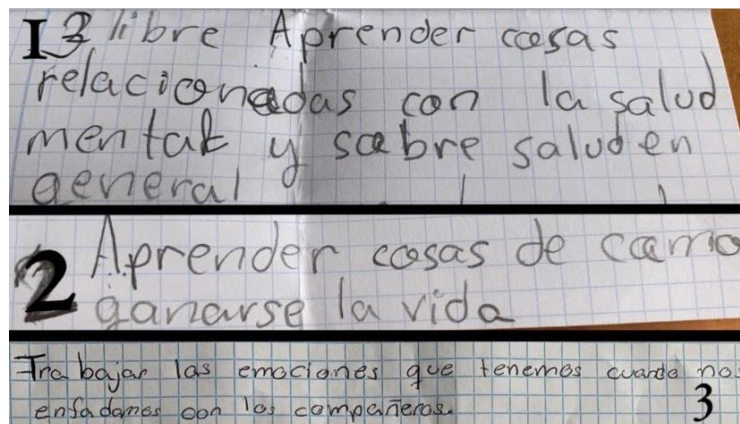 1 3 libre Aprender cosas
relacionadas con la salud
mental y sobre salud en
general
2 Aprender cosas de como
ganarse la vida
Trabajar las emociones que tenemos cuando nos
enfadamos con los compañeros.
3